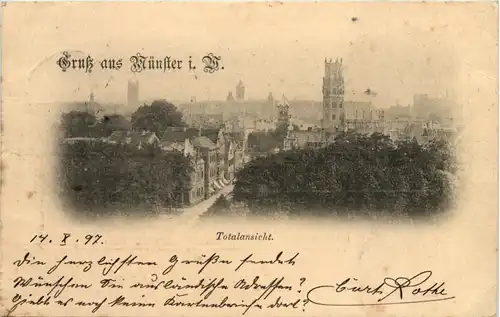 Gruß aus Münster i. W.
Totalansicht.
14. X. 97.
Die herzlichsten Grüße sendet
Wünschen Sie ausländische Adressen?
Giebt es noch keine Kartenbriefe dort?
Curt Rothe